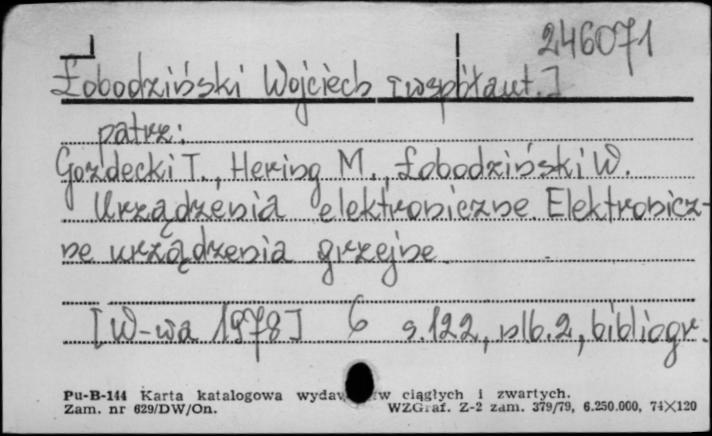 246071
Łobodziński Wojciech [współaut.]
patrz:
Gozdecki T., Hering M., Łobodziński W.
Urządzenia elektroniczne. Elektronicz-
ne urządzenia grzejne.
[W-wa 1978] 6 s.122, nlb.2, bibliogr.
Pu-B-144 Karta katalogowa wydaw w ciągłych i zwartych.
Zam. nr 629/DW/On. WZGraf. Z-2 zam. 379/79, 6.250.000, 74×120